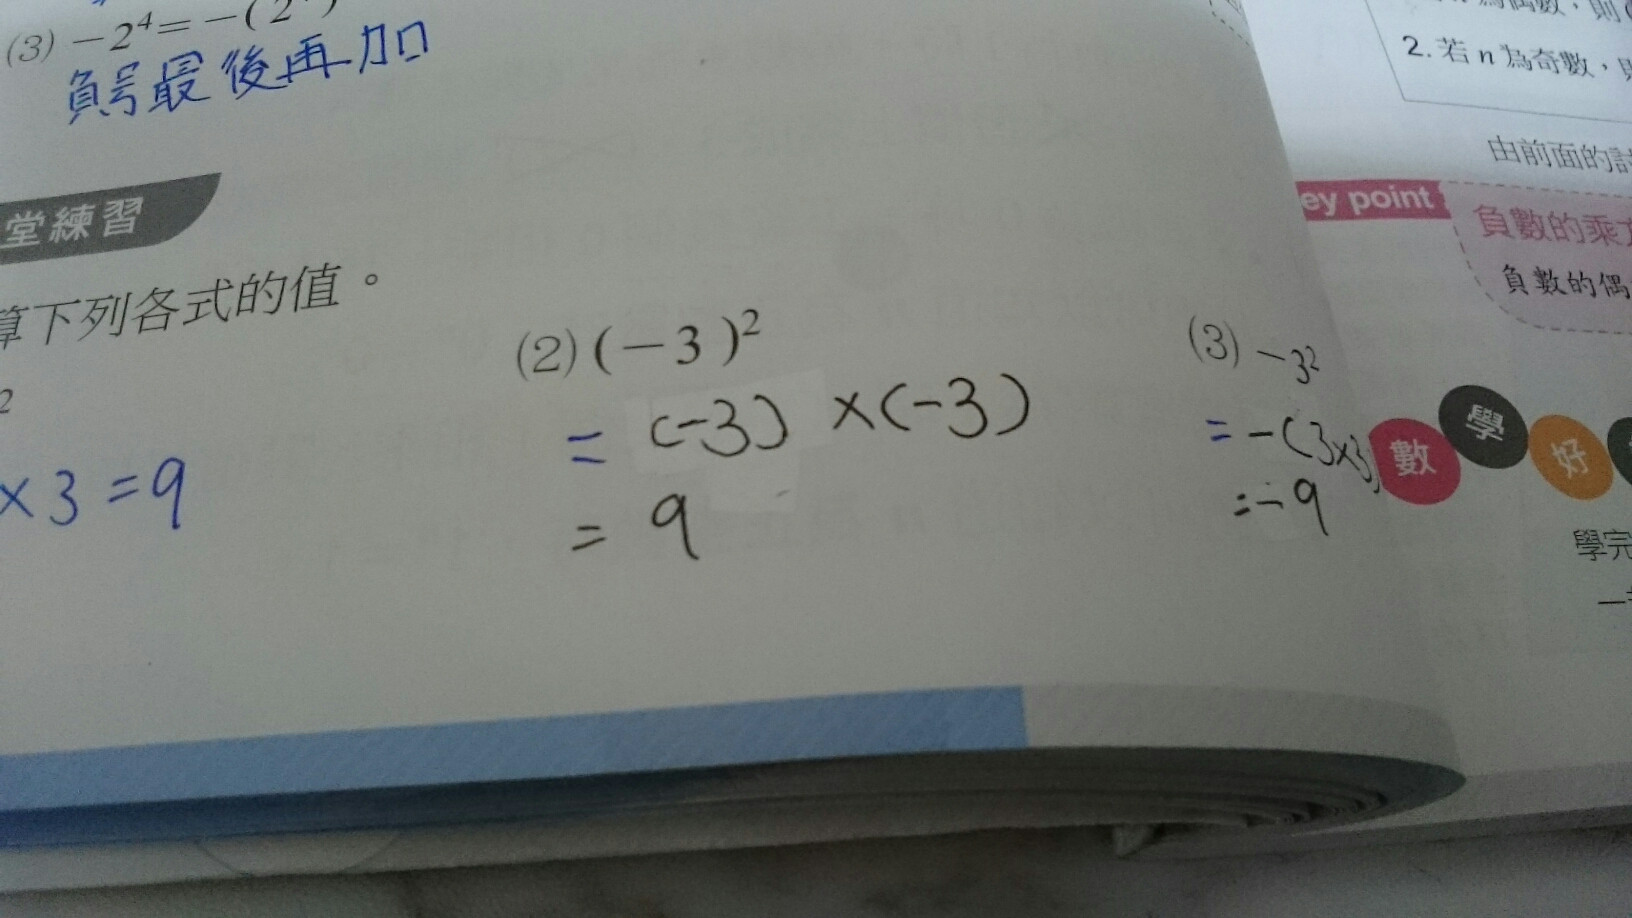 (3) −2⁴=−(2
負號最後再加
堂練習
算下列各式的值。
2
×3=9
(2) (−3)²
= (-3) ×(-3)
= 9
(3) −3²
= -(3×3)
= -9
為偶數，則(
2. 若 n 為奇數，則
由前面的討
ey point
負數的乘方
負數的偶
數學好
學完
一